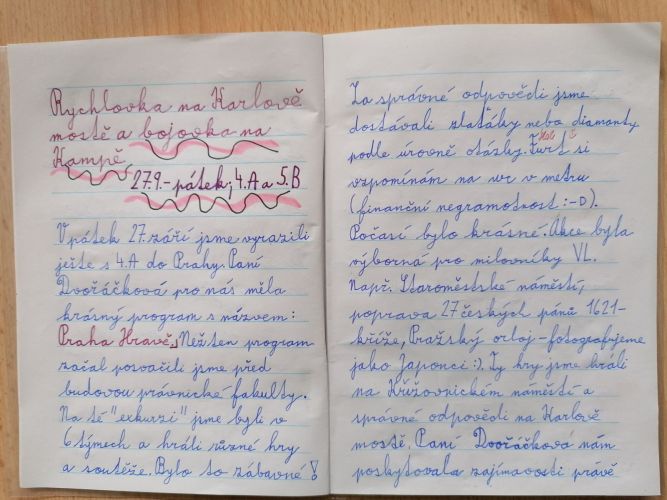 Rychlovka na Karlově
mostě a bojovka na
Kampě
27.9.-pátek; 4.A a 5.B
V pátek 27. září jsme vyrazili
ješte s 4.A do Prahy. Paní
Dvořáčková pro nás měla
krásný program s názvem:
Praha Hravě. Nežten program
začal posvačili jsme před
budovou právnické fakulty.
Na té "exkurzi" jsme byli v
6 týmech a hráli různé hry
a soutěže. Bylo to zábavné!
Za správné odpovědi jsme
dostávali zlaťáky nebo diamanty
podle úrovně otázky. Furt si
vzpomínám na wc v metru
(finanční negramotnost :-D).
Počasí bylo krásné. Akce byla
výborná pro milovníky VL.
Např. Staroměstské náměstí,
poprava 27 českých pánů 1621-
kříže, Pražský orloj - fotografujeme
jako Japonci :). Ty hry jsme hráli
na Křížovnickém náměstí a
správné odpovědi na Karlově
mostě. Paní Dvořáčková nám
poskytovala zajímavosti právě